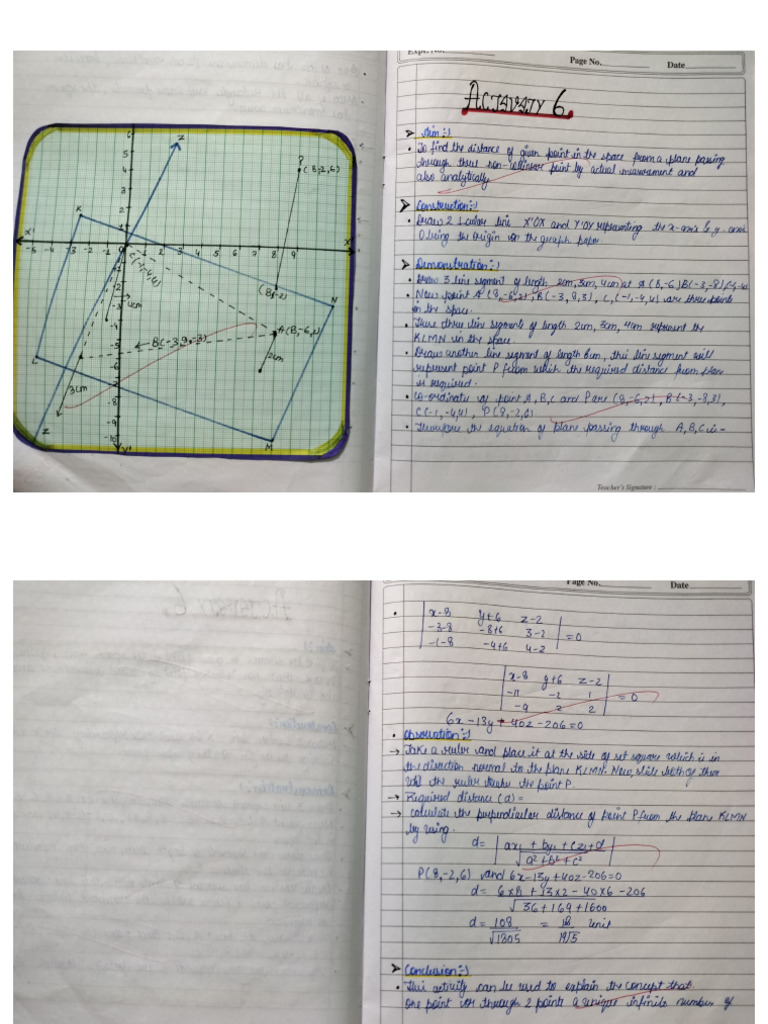 Expt. No.
Page No.
Date
ACTIVITY 6.
Aim :-)
To find the distance of given point in the space from a plane passing
through three non-collinear point by actual measurement and
also analytically.
Construction :-)
Draw 2 line X'OX and Y'OY representing the x-axis & y-axis
O being the origin on the graph paper
Demonstration :-)
Draw 3 line segment of length 2cm, 3cm, 4cm at A (8,-6) B(-3,-8)
Now point A (8,-6,2), B(-3,8,3), C(-1,-4,4) are three points
in the space.
These three line segments of length 2cm, 3cm, 4cm represent the
KLMN in the space.
Draw another line segment of length 6cm, this line segment will
represent point P from which the required distance from plane
is required.
Co-ordinate of point A, B, C and P are (8,-6,2), B(-3,-8,3),
C(-1,-4,4), P(8,-2,6)
Therefore the equation of plane passing through A, B, C is -
Teacher's Signature :
6
5
4
3
2
1
Z
P
(8,-2,6)
K
X'
-5 -4 -3 -2 -1
0
1 2 3 4 5 6 7 8 9
X
C(-1,-4,4)
4cm
(8,-2)
N
A(8,-6,2)
B(-3,8,-3)
2cm
L
3cm
Z
Y'
M
Page No.
Date
x-8 y+6 z-2
-3-8 -8+6 3-2 =0
-1-8 -4+6 4-2
x-8 y+6 z-2
-11 -2 1 =0
-9 2 2
6x-13y+40z-206=0
Observation :-)
→ Take a ruler and place it at the side of set square which is in
the direction normal to the plane KLMN. Now, slide both of them
till the ruler the point P.
→ Required distance (d) =
→ Calculate the perpendicular distance of point P from the plane KLMN
by using.
d= | ax₁ + by₁ + cz₁ + d |
√a²+b²+c²
P(8,-2,6) and 6x-13y+40z-206=0
d= 6×8 +13×2 -40×6 -206
√36+169+1600
d= 108 = 18 unit
√1805 19√5
Conclusion :-)
This activity can be used to explain the concept that
one point or through 2 points a unique infinite number of